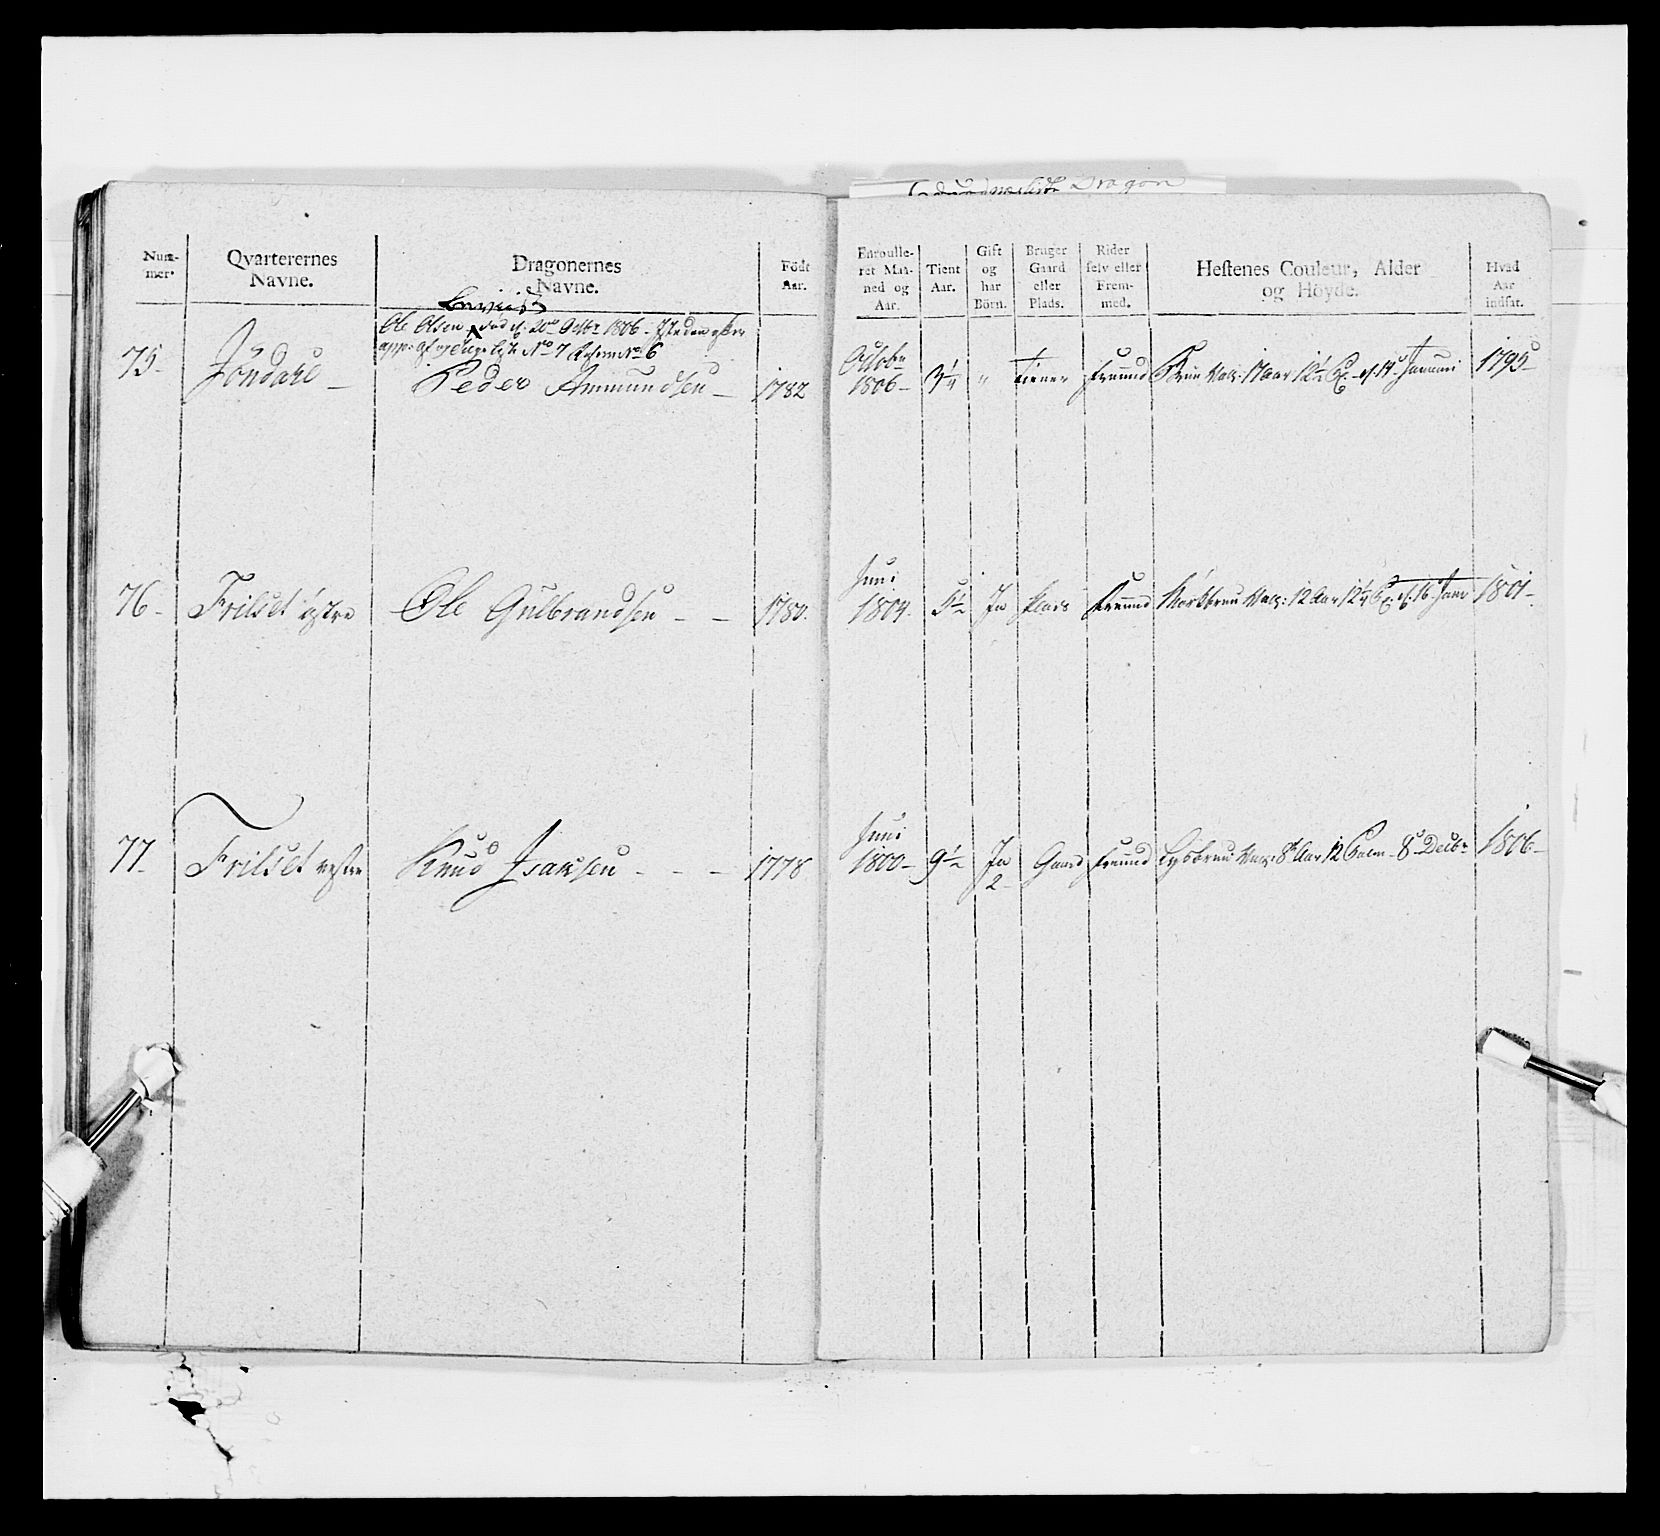 Nummer.
Qvarterernes Navne.
Dragonernes Navne.
Födt Aar.
Enroulleret Maaned og Aar.
Tient Aar.
Gift og har Börn.
Bruger Gaard eller Plads.
Rider selv eller Fremmed.
Hestenes Couleur, Alder og Höyde.
Hvad Aar indsat.
Dragon
Ole Olsen död d. 20de Octbr 1806.
No 7 No 6
75. Jöndahl – Peder Ammundsen – 1782 Octobr 1806 – 3 1/4 " tiener fremmd Brun Val: 17 Aar 12 1/2 14 Januari 1795
76. Frilset östre Ole Gulbrandsen – – 1780. Juni 1804. 5 1/2 Ja Plads fremmd Mörkbrun Val: 12 Aar 12 1/4 16 Janr 1801 –
77. Frilset vestre Knud Isaksen – – – 1778 Juni 1800 – 9 1/2 Ja 2 Gaard fremmd Lysbrun Val: 8 Aar 12 Palm 8 Decbr 1806 –